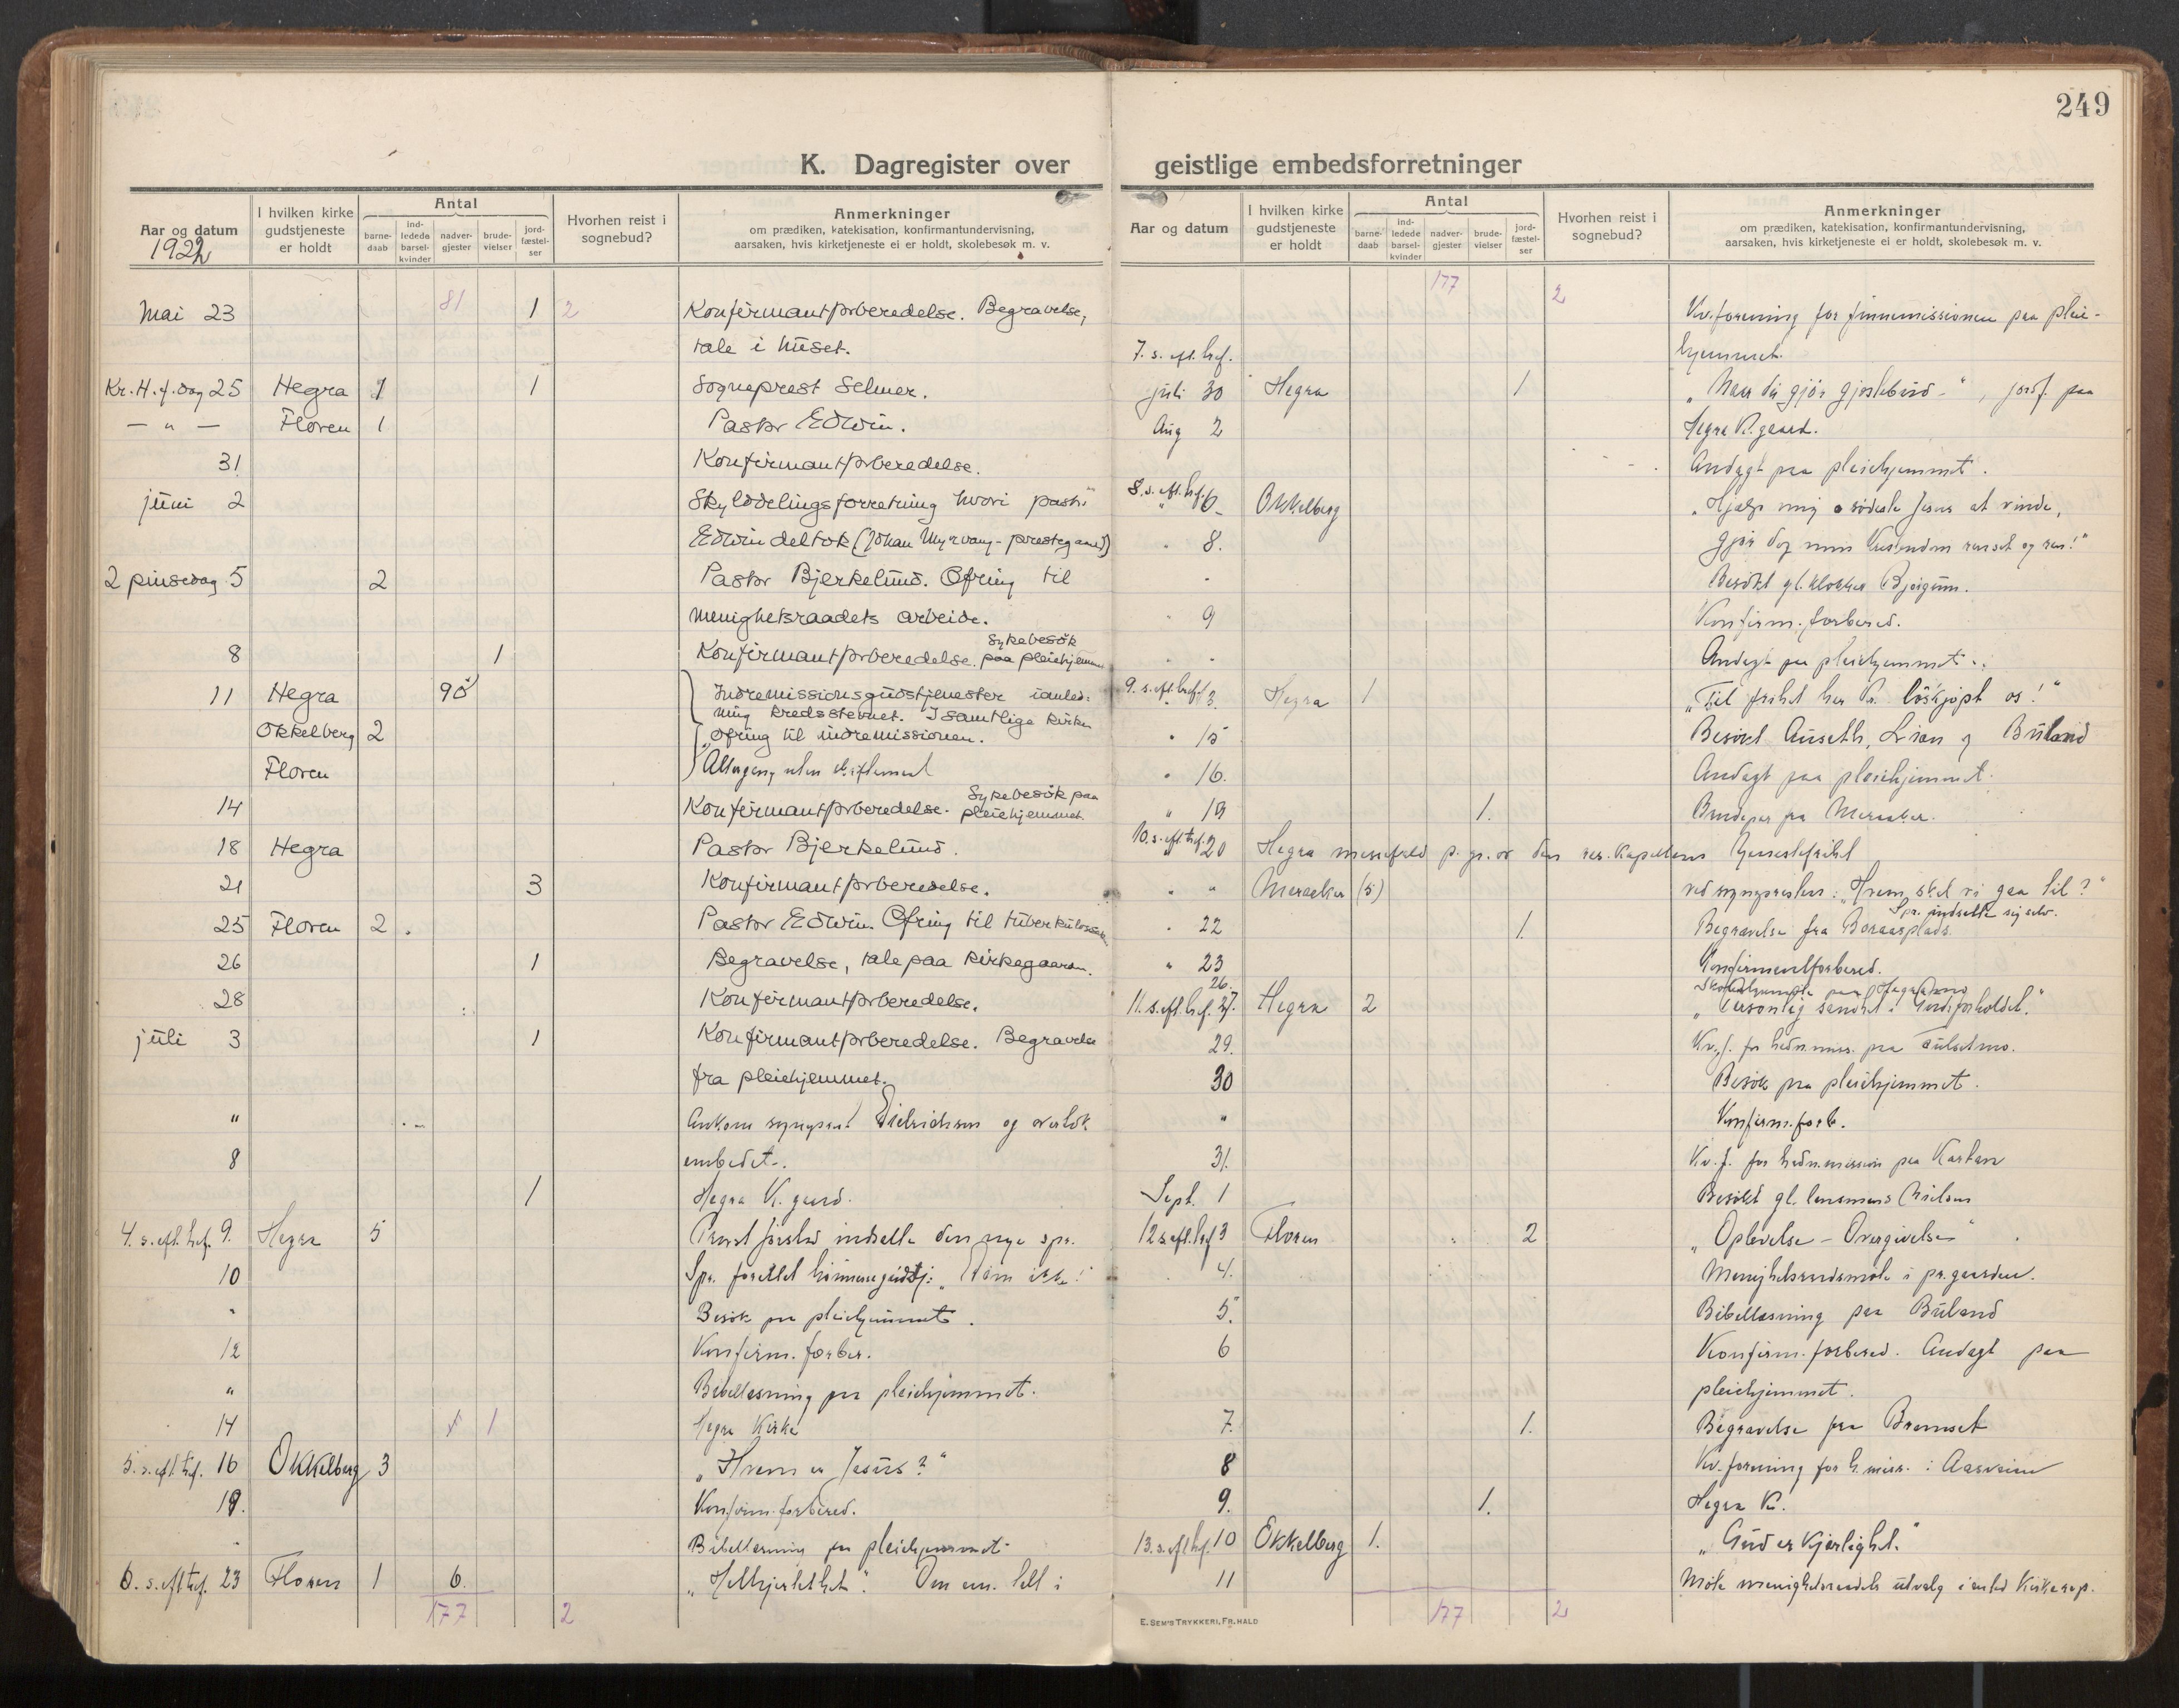 249
K. Dagregister over geistlige embedsforretninger
Aar og datum
1922
I hvilken kirke gudstjeneste er holdt
Antal
barne-daab
ind-ledede barsel-kvinder
nadver-gjester
brude-vielser
jord-fæstel-ser
Hvorhen reist i sognebud?
Anmerkninger
om prædiken, katekisation, konfirmantundervisning,
aarsaken, hvis kirketjeneste ei er holdt, skolebesøk m. v.
81 2
Mai 23 1 Konfirmantforberedelse. Begravelse,
tale i huset.
Kr. H. f. dag 25 Hegra 1 1 Sogneprest Selmer.
— " — Floren 1 Pastor Edwin.
31 Konfirmantforberedelse.
juni 2 Skylddelingsforretning hvori pastor
Edwin deltok (Johan Myrvang - prestegaard)
2 pinsedag 5 2 Pastor Bjerkelund. Ofring til
menighetsraadets arbeide.
8 1 Konfirmantforberedelse. Sykebesök paa pleiehjemmet
11 Hegra 90 Indremissionsgudstjenester i anled-
ning kredsstevnet. I samtlige kirker
Okkelberg 2 ofring til indremissionen.
Floren Altergang uten skriftemaal
14 Konfirmantforberedelse. Sykebesök paa pleiehjemmet
18 Hegra Pastor Bjerkelund.
21 3 Konfirmantforberedelse.
25 Floren 2 Pastor Edwin. Ofring til tuberkulosesak.
26 1 Begravelse, tale paa kirkegaarden.
28 Konfirmantforberedelse.
juli 3 1 Konfirmantforberedelse. Begravelse
fra pleiehjemmet.
" Ankom sognepr. Didrichsen og overtok
8 embedet.
1 Hegra K. gaard.
4. s. eft. tref. 9. Hegra 5 Prost indsatte den nye spr.
10 Spr. "Döm ikke!"
" Besök paa pleiehjemmet.
12 Konfirm. forber.
" Bibellæsning paa pleiehjemmet.
14 1 Hegra Kirke
5. s. eft. tref. 16 Okkelberg 3 "Hvem er Jesus?"
19. Konfirm. forbered.
" Bibellæsning paa pleiehjemmet
6. s. eft. tref. 23 Floren 1 6. "Helhjertethet". Om em. lell i
177 2
Aar og datum
I hvilken kirke gudstjeneste er holdt
Antal
barne-daab
ind-ledede barsel-kvinder
nadver-gjester
brude-vielser
jord-fæstel-ser
Hvorhen reist i sognebud?
Anmerkninger
om prædiken, katekisation, konfirmantundervisning,
aarsaken, hvis kirketjeneste ei er holdt, skolebesøk m. v.
177 2
Kv. forening for finnemissionen paa pleie-
7. s. eft. tref. hjemmet.
juli 30 Hegra 1 "Naar du gjör gjestebud -", jordf. paa
Aug 2 Hegra K. gaard.
Andagt paa pleiehjemmet.
8. s. eft. tref. 6 Okkelberg "Hjælp mig o södeste Jesus at vinde,
" 8. gjör dog min kristendom renset og ren!"
" Besökt gl. klokker Bjergum.
" 9 Konfirm. forbered.
" " Andagt paa pleiehjemmet.
9. s. eft. tref. 13. Hegra 1 "Til frihet har Kr. löskjöpt os!"
" 15 Besökt Auseth, Lian og Buland
" 16. Andagt paa pleiehjemmet.
" 19 1. Brudepar fra Meraaker.
10. s. eft. tref. 20 Hegra messefald p. gr. av den res. kapellans tjenestefrihet
" " Meraaker (5) ved sognepresten: "Hvem skal vi gaa til?"
Spr. indsatte sig selv.
" 22 1. Begravelse fra Boraasplads
" 23 Konfirmantforbered.
26.
11. s. eft. tref. 27. Hegra 2 "Personlig sandhet i Gudsforholdet."
29. Kv. f. for hedn. miss. paa Fulsetmo.
30 Besök paa pleiehjemmet.
" Konfirm. forb.
31. Kv. f. for hedn. mission paa Kartan
Sept. 1 Besökt gl. lensmans Nielsen
12 s. eft. tref 3 Floren 2 "Oplevelse - Overgivelse"
4. Menighetsraadsmöte i pr. gaarden.
5. Bibellæsning paa Buland
6 Konfirm. forbered. Andagt paa
pleiehjemmet.
7. 1. Begravelse fra Bremset
8 Kv. forening for h. miss. i Aasveien
9. 1. Hegra K.
13. s. eft. tref. 10 Okkelberg 1. "Gud er Kjærlighet."
11 Möte menighetsraadets utvalg i anled Kirkerep.
177 2
E. SEM'S TRYKKERI, FR. HALD